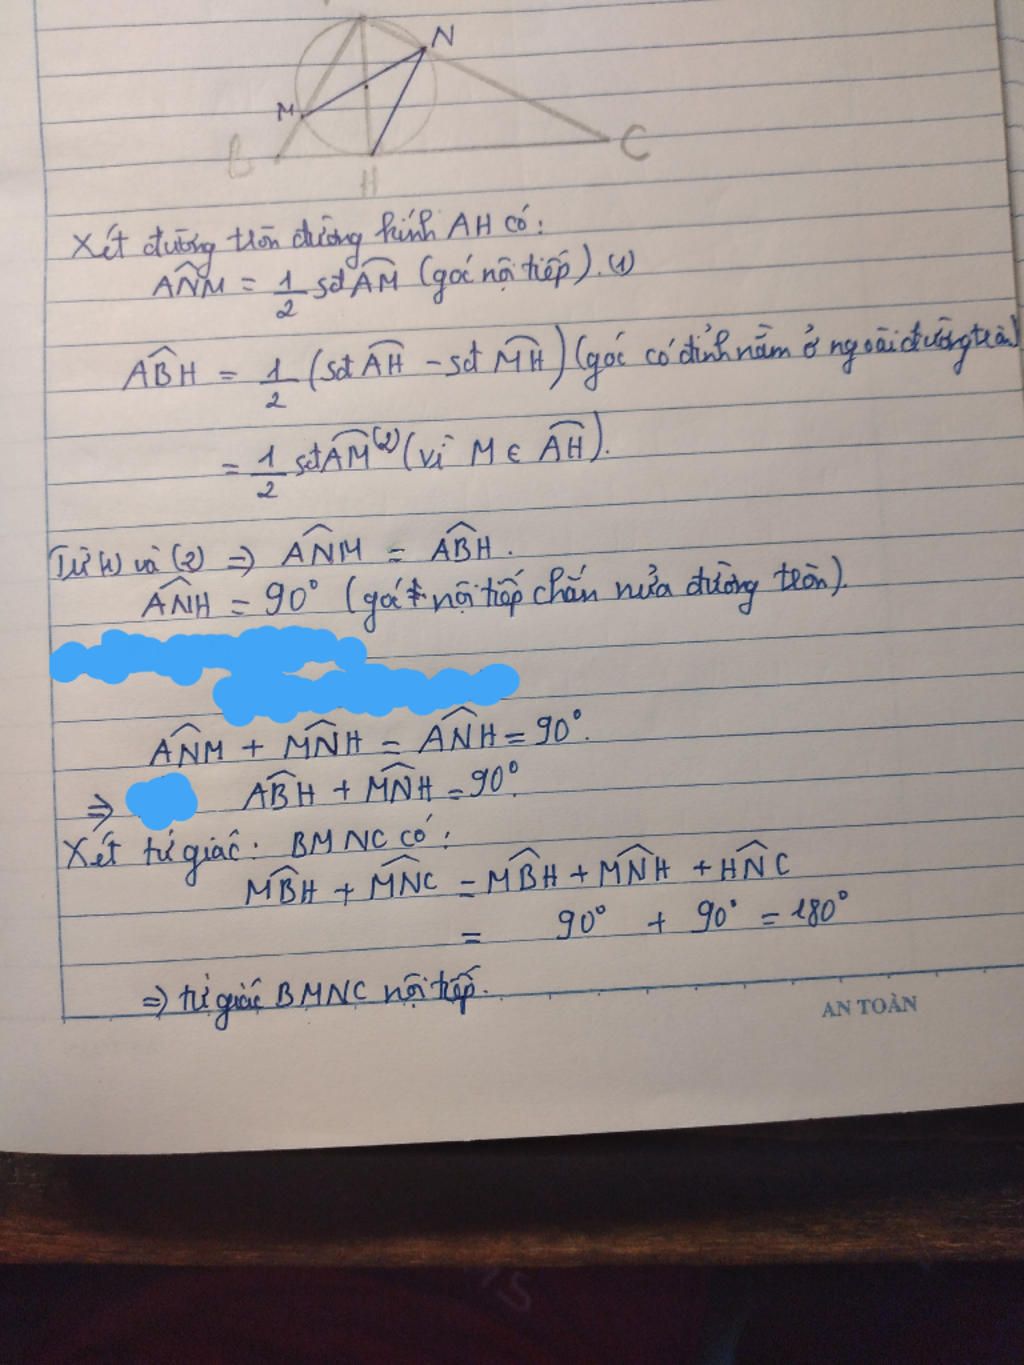 N
M
B
C
H
Xét đường tròn đường kính AH có:
ANM = 1/2 sđ AM (góc nội tiếp). (1)
ABH = 1/2 (sđ AH - sđ MH) (góc có đỉnh nằm ở ngoài đường tròn)
= 1/2 sđ AM (2) (vì M ∈ AH).
Từ (1) và (2) => ANM = ABH.
ANH = 90° (góc nội tiếp chắn nửa đường tròn).
ANM + MNH = ANH = 90°.
=> ABH + MNH = 90°.
Xét tứ giác: BMNC có:
MBH + MNC = MBH + MNH + HNC
= 90° + 90° = 180°
=> tứ giác BMNC nội tiếp.
AN TOÀN